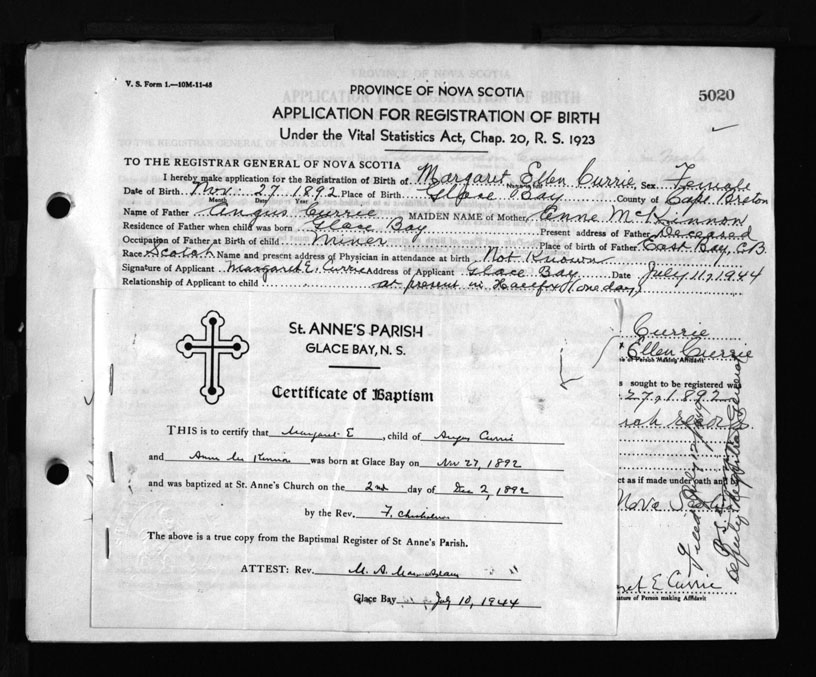 V. S. Form 1.—10M-11-43
PROVINCE OF NOVA SCOTIA
5020
APPLICATION FOR REGISTRATION OF BIRTH
Under the Vital Statistics Act, Chap. 20, R. S. 1923
TO THE REGISTRAR GENERAL OF NOVA SCOTIA
I hereby make application for the Registration of Birth of Margaret Ellen Currie Sex Female
Date of Birth Nov. 27 1892 Place of Birth Glace Bay County of Cape Breton
Month Day Year
Name of Father Angus Currie MAIDEN NAME of Mother Anne McKinnon
Residence of Father when child was born Glace Bay Present address of Father Deceased
Occupation of Father at Birth of child Miner Place of birth of Father East Bay, C.B.
Race Scotch Name and present address of Physician in attendance at birth Not Known
Signature of Applicant Margaret E. Currie Address of Applicant Glace Bay Date July 11, 1944
Relationship of Applicant to child at present in Halifax (one day)
St. ANNE'S PARISH
GLACE BAY, N. S.
Certificate of Baptism
THIS is to certify that Margaret E, child of Angus Currie
and Anne McKinnon was born at Glace Bay on Nov 27, 1892
and was baptized at St. Anne's Church on the 2nd day of Dec 2, 1892
by the Rev. F. Chisholm
The above is a true copy from the Baptismal Register of St Anne's Parish.
ATTEST: Rev. M. A.
Glace Bay July 10, 1944
Currie
Ellen Currie
of Person Making Affidavit
s sought to be registered was
27, 1892
ct as if made under oath and
Nova Sco
ret E Currie
ature of Person making Affidavit
Filed July 12/1944
Deputy Registrar General